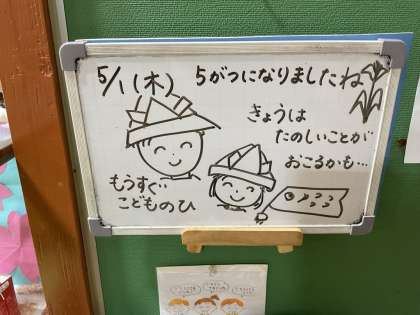 5/1(木) 5がつになりましたね
きょうは
たのしいことが
おこるかも…
もうすぐ…
こどものひ